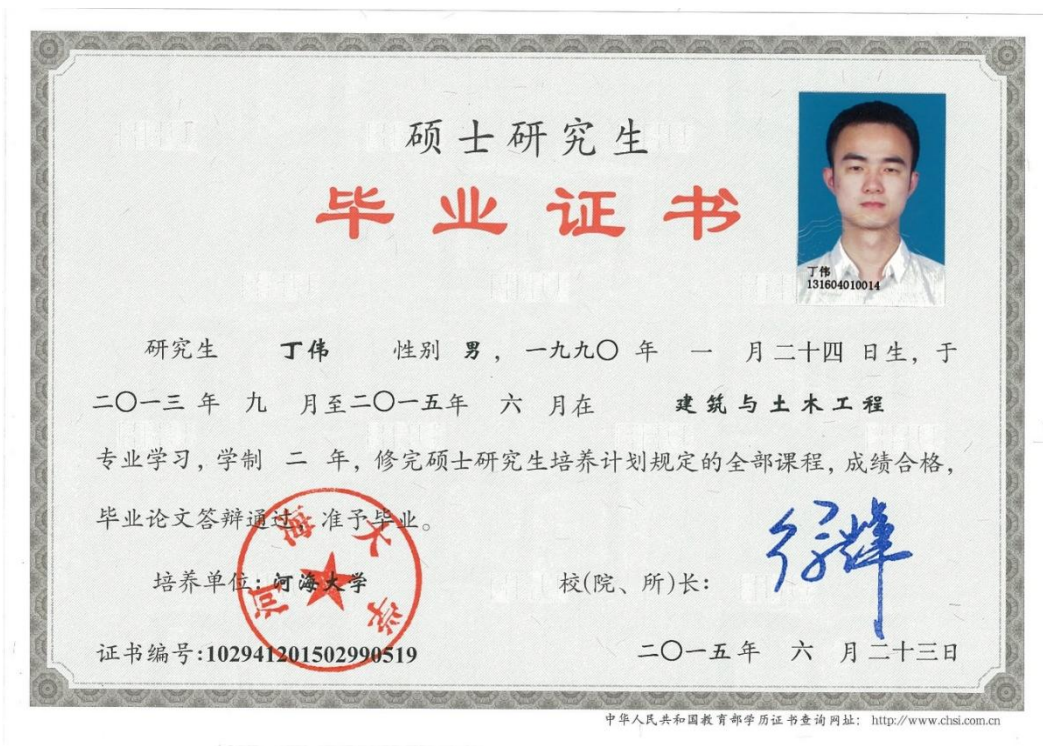 硕士研究生
毕业证书
丁伟
131604010014
研究生 丁伟 性别 男，一九九〇 年 一 月二十四 日生，于
二〇一三 年 九 月至二〇一五年 六 月在 建筑与土木工程
专业学习，学制 二 年，修完硕士研究生培养计划规定的全部课程，成绩合格，
毕业论文答辩通过，准予毕业。
河海大学
培养单位：河海大学 校(院、所)长：
证书编号:102941201502990519 二〇一五年 六 月二十三日
中华人民共和国教育部学历证书查询网址： http://www.chsi.com.cn